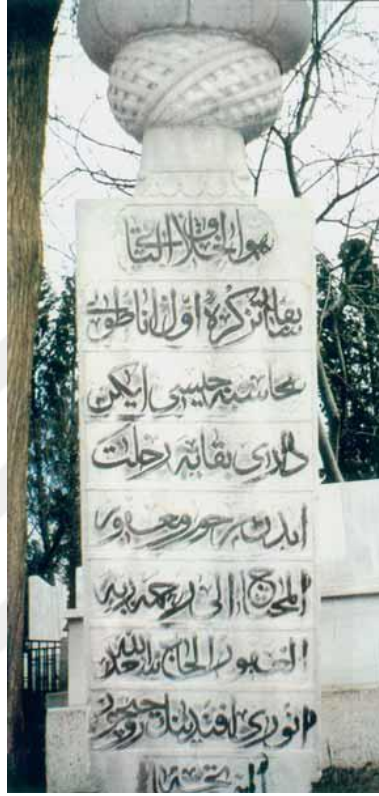 هو الخلاق الباقي
كره اول اناطولی
محاسبه جیسی ایکن
داری بقایه رحلت
ایدن مرحوم و مغفور
المحتاج الی رحمة ربه
الغفور الحاج سعد الله
انوری افندینك روحیچون
الفاتحه